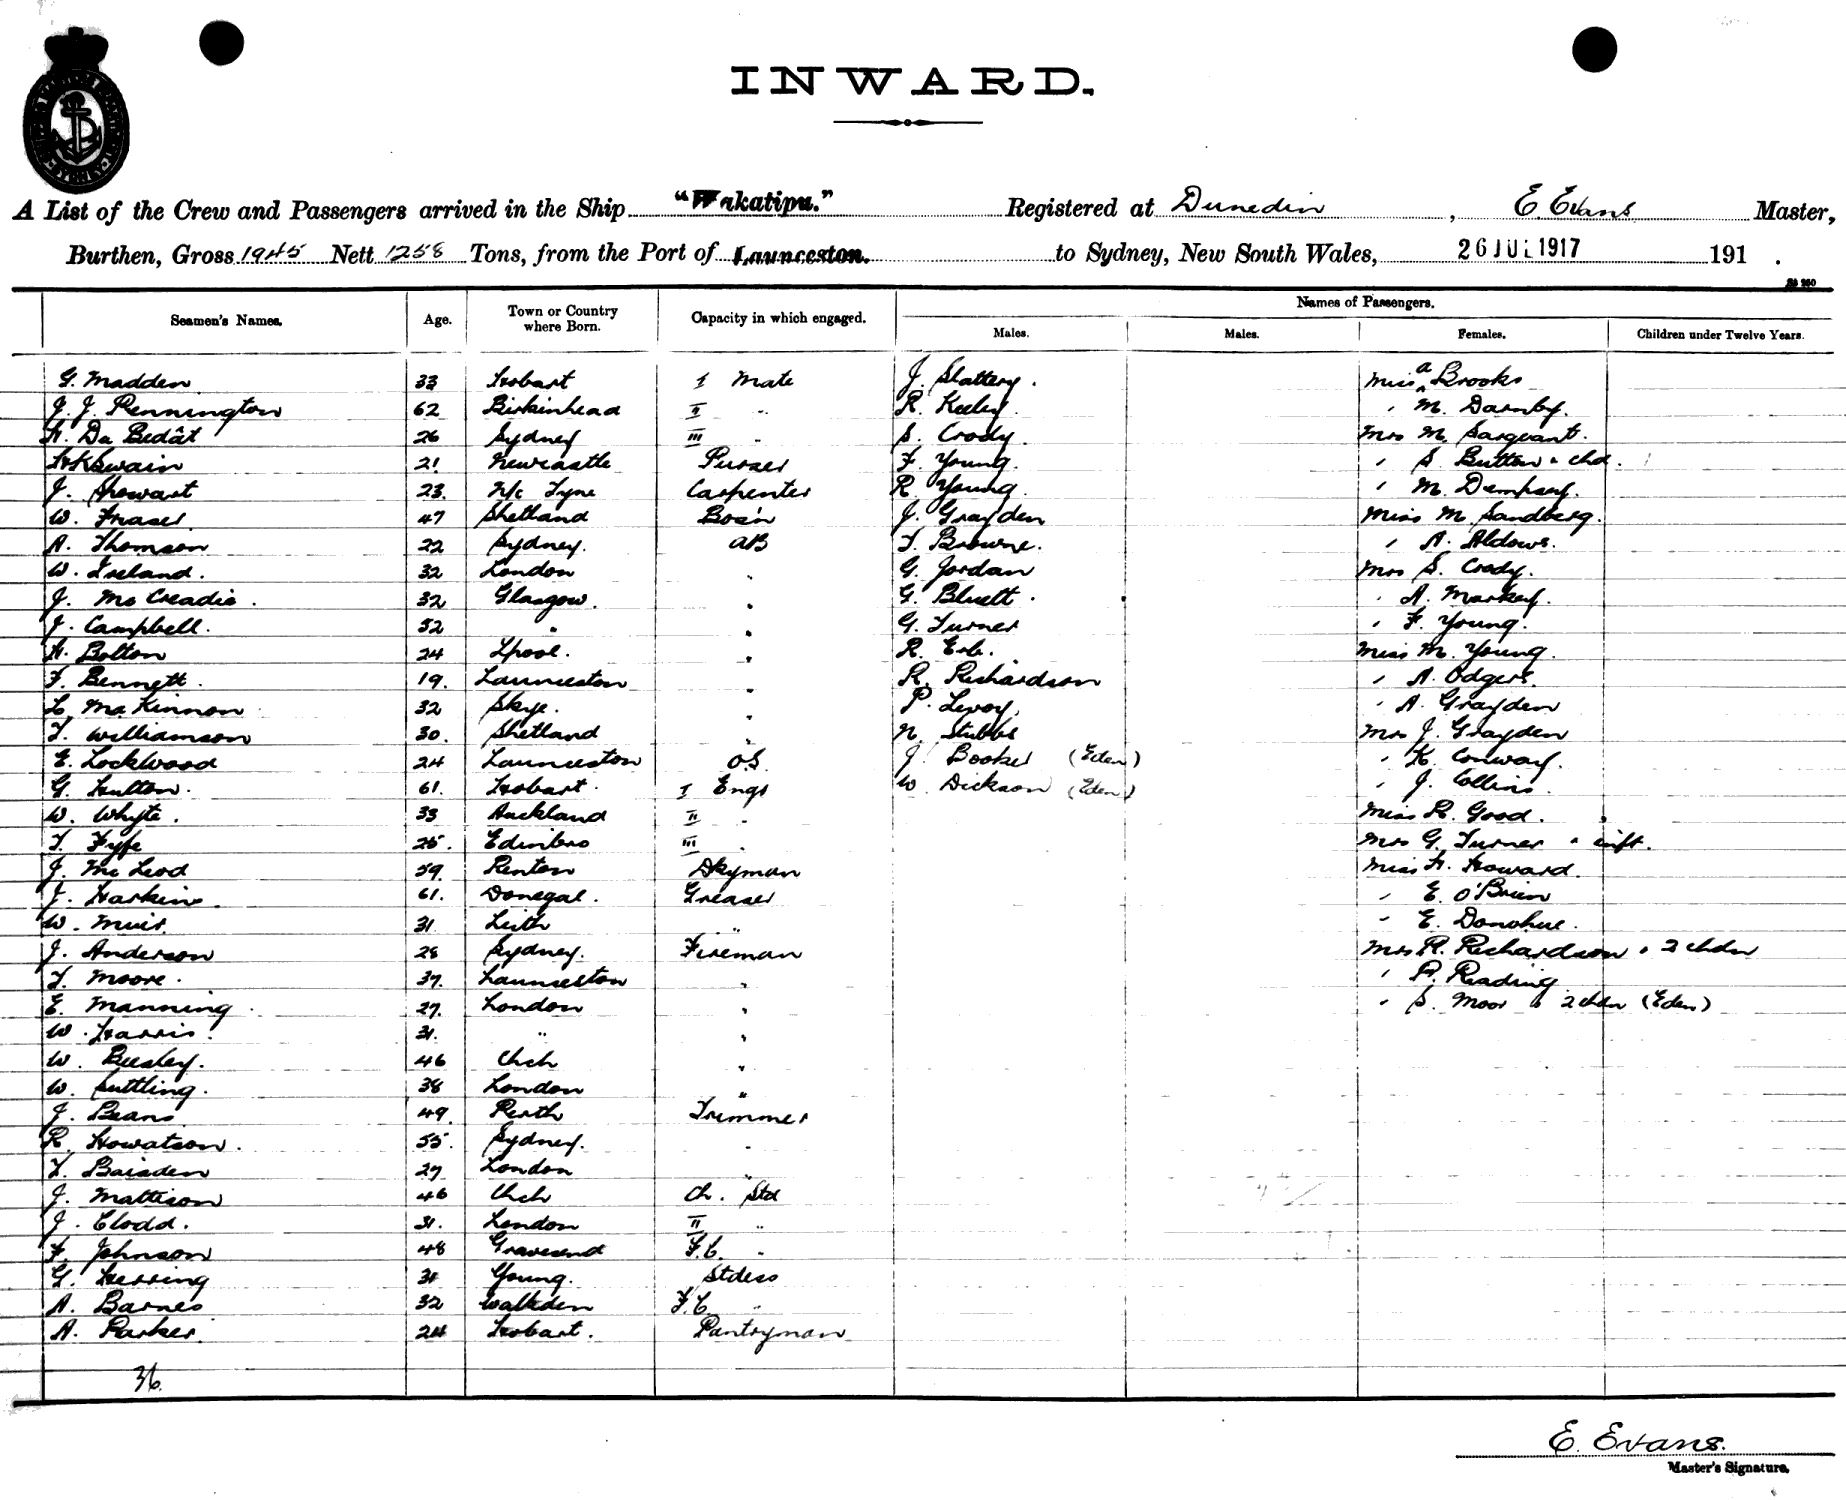 INWARD.
A List of the Crew and Passengers arrived in the Ship "Wakatipu." Registered at Dunedin, E Evans Master,
Burthen, Gross 1945 Nett 1258 Tons, from the Port of Launceston. to Sydney, New South Wales, 26 JUL 1917 191 .
Names of Passengers.
Seamen's Names. Age. Town or Country where Born. Capacity in which engaged. Males. Males. Females. Children under Twelve Years.
G. Madden 33 Hobart I Mate J. Slattery. Miss A Brooks
J. J. Pennington 62 Birkinhead II " R. Keeley. " M. Darnby.
H. Da Bedât 26 Sydney III " S. Crody. Mrs M. Sargeant.
Swain 21 Newcastle Purser F. Young. " S. Button & chd.
J. Howart 23. N/c Tyne Carpenter R Young. " M. Dempsey.
W. Fraser. 47 Shetland Bos'n J. Grayden Miss M. Sandberg.
A. Thomson 22 Sydney. AB T. Browne. " A.
W. Ireland. 32 London " G. Jordan Mrs S. Crody.
J. Mc Creadie. 32 Glasgow. " G. Bluett. " A. Markey.
J. Campbell. 52 " " G. Turner " F. Young.
H. Bolton 24 Lpool. " R. Miss M. Young.
F. Bennett. 19. Launceston " R. Richardson " A. Odgers.
L. Mc Kinnon 32 Skye. " P. Levoy. " A. Grayden
T. Williamson 30. Shetland " N. Stubbs Mrs J. Grayden
E. Lockwood 24 Launceston O.S. J. Booker (Eden) " K. Conway.
G. Hutton. 61. Hobart. I Engr W. Dickson (Eden) " J. Collins.
W. Whyte. 33 Auckland II " Miss R. Good.
T. Fyfe 25. Edinbro III " Mrs G. Turner & inft.
J. Mc Leod 59. Renton Dkyman Miss H. Howard.
J. Harkin. 61. Donegal. Greaser " E. O'Brien
W. Muir. 31 Leith " " E. Donohue.
J. Anderson 28 Sydney. Fireman Mrs R. Richardson & 2 chdn
T. Moore. 37. Launceston " " R. Reading
E. Manning 27. London " " S. Moor & 2 chdn (Eden)
W. Harris. 31. " "
W. Beesley. 46 Chch "
W. Suttling. 38 London "
J. Beans 49. Perth Trimmer
R. Howatson. 55. Sydney. "
T. Baisden 27 London "
J. Mattison 46 Chch Ch. Std
J. Clodd. 31. London II "
F. Johnson 48 Gravesend F.C. "
G. Herring 31 Young. Stdess
A. Barnes 32 Walkden F.C. "
A. Parker. 24 Hobart. Pantryman
36.
E. Evans.
Master's Signature.